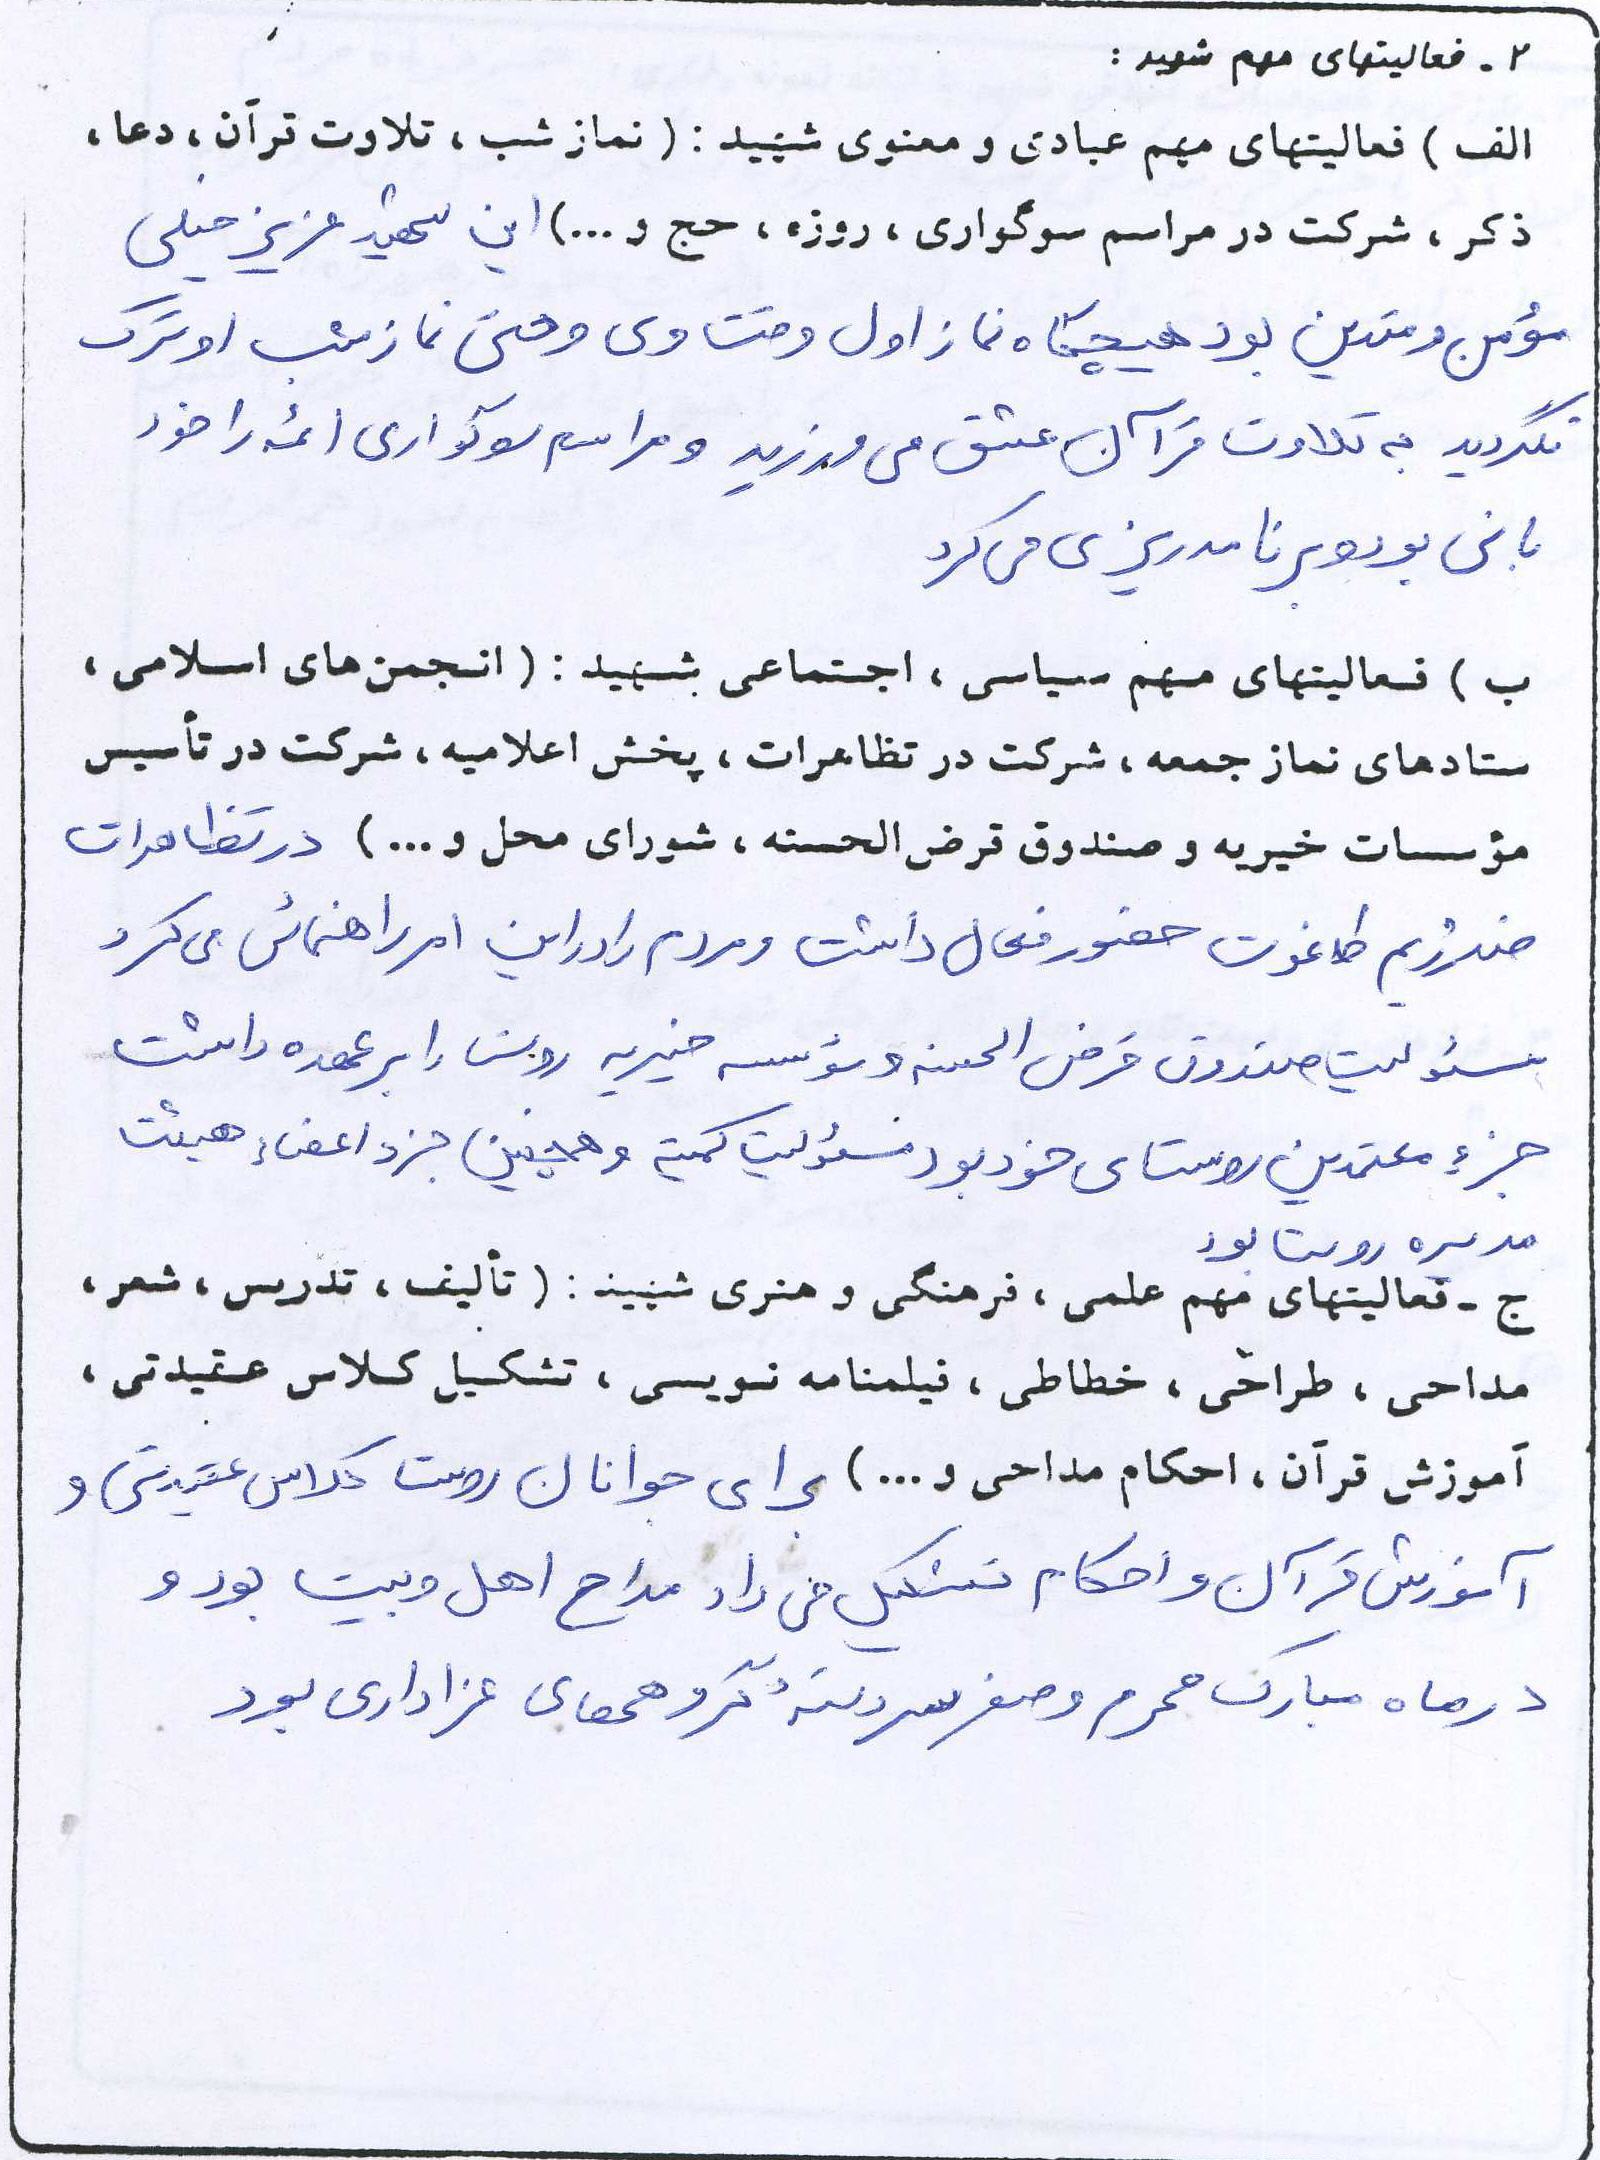 ۲ - فعالیتهای مهم شهید :
الف ) فعالیتهای مهم عبادی و معنوی شهید : ( نماز شب ، تلاوت قرآن ، دعا ،
ذکر ، شرکت در مراسم سوگواری ، روزه ، حج و ...) این شهید عزیز خیلی
مؤمن و متدین بود هیچگاه نماز اول وقت وی و حتی نماز شب او ترک
نگردید به تلاوت قرآن عشق می ورزید و مراسم سوگواری ائمه را خود
بانی بود و برنامه ریزی می کرد
ب ) فعالیتهای مهم سیاسی ، اجتماعی شهید : ( انجمن های اسلامی ،
ستادهای نماز جمعه ، شرکت در تظاهرات ، پخش اعلامیه ، شرکت در تأسیس
مؤسسات خیریه و صندوق قرض الحسنه ، شورای محل و ...) در تظاهرات
ضد رژیم طاغوت حضور فعال داشت و مردم را در این امر راهنمائی می کرد
مسئولیت صندوق قرض الحسنه و مؤسسه خیریه روستا را بر عهده داشت
جزء معتمدین روستای خود بود مسئولیت کمیته و همچنین جزء اعضاء هیئت
مدیره روستا بود
ج - فعالیتهای مهم علمی ، فرهنگی و هنری شهید : ( تألیف ، تدریس ، شعر ،
مداحی ، طراحی ، خطاطی ، فیلمنامه نویسی ، تشکیل کلاس عقیدتی ،
آموزش قرآن ، احکام مداحی و ...) برای جوانان روستا کلاس عقیدتی و
آموزش قرآن و احکام تشکیل می داد مداح اهل و بیت بود و
در ماه مبارک محرم و صفر سردستهٔ گروههای عزاداری بود